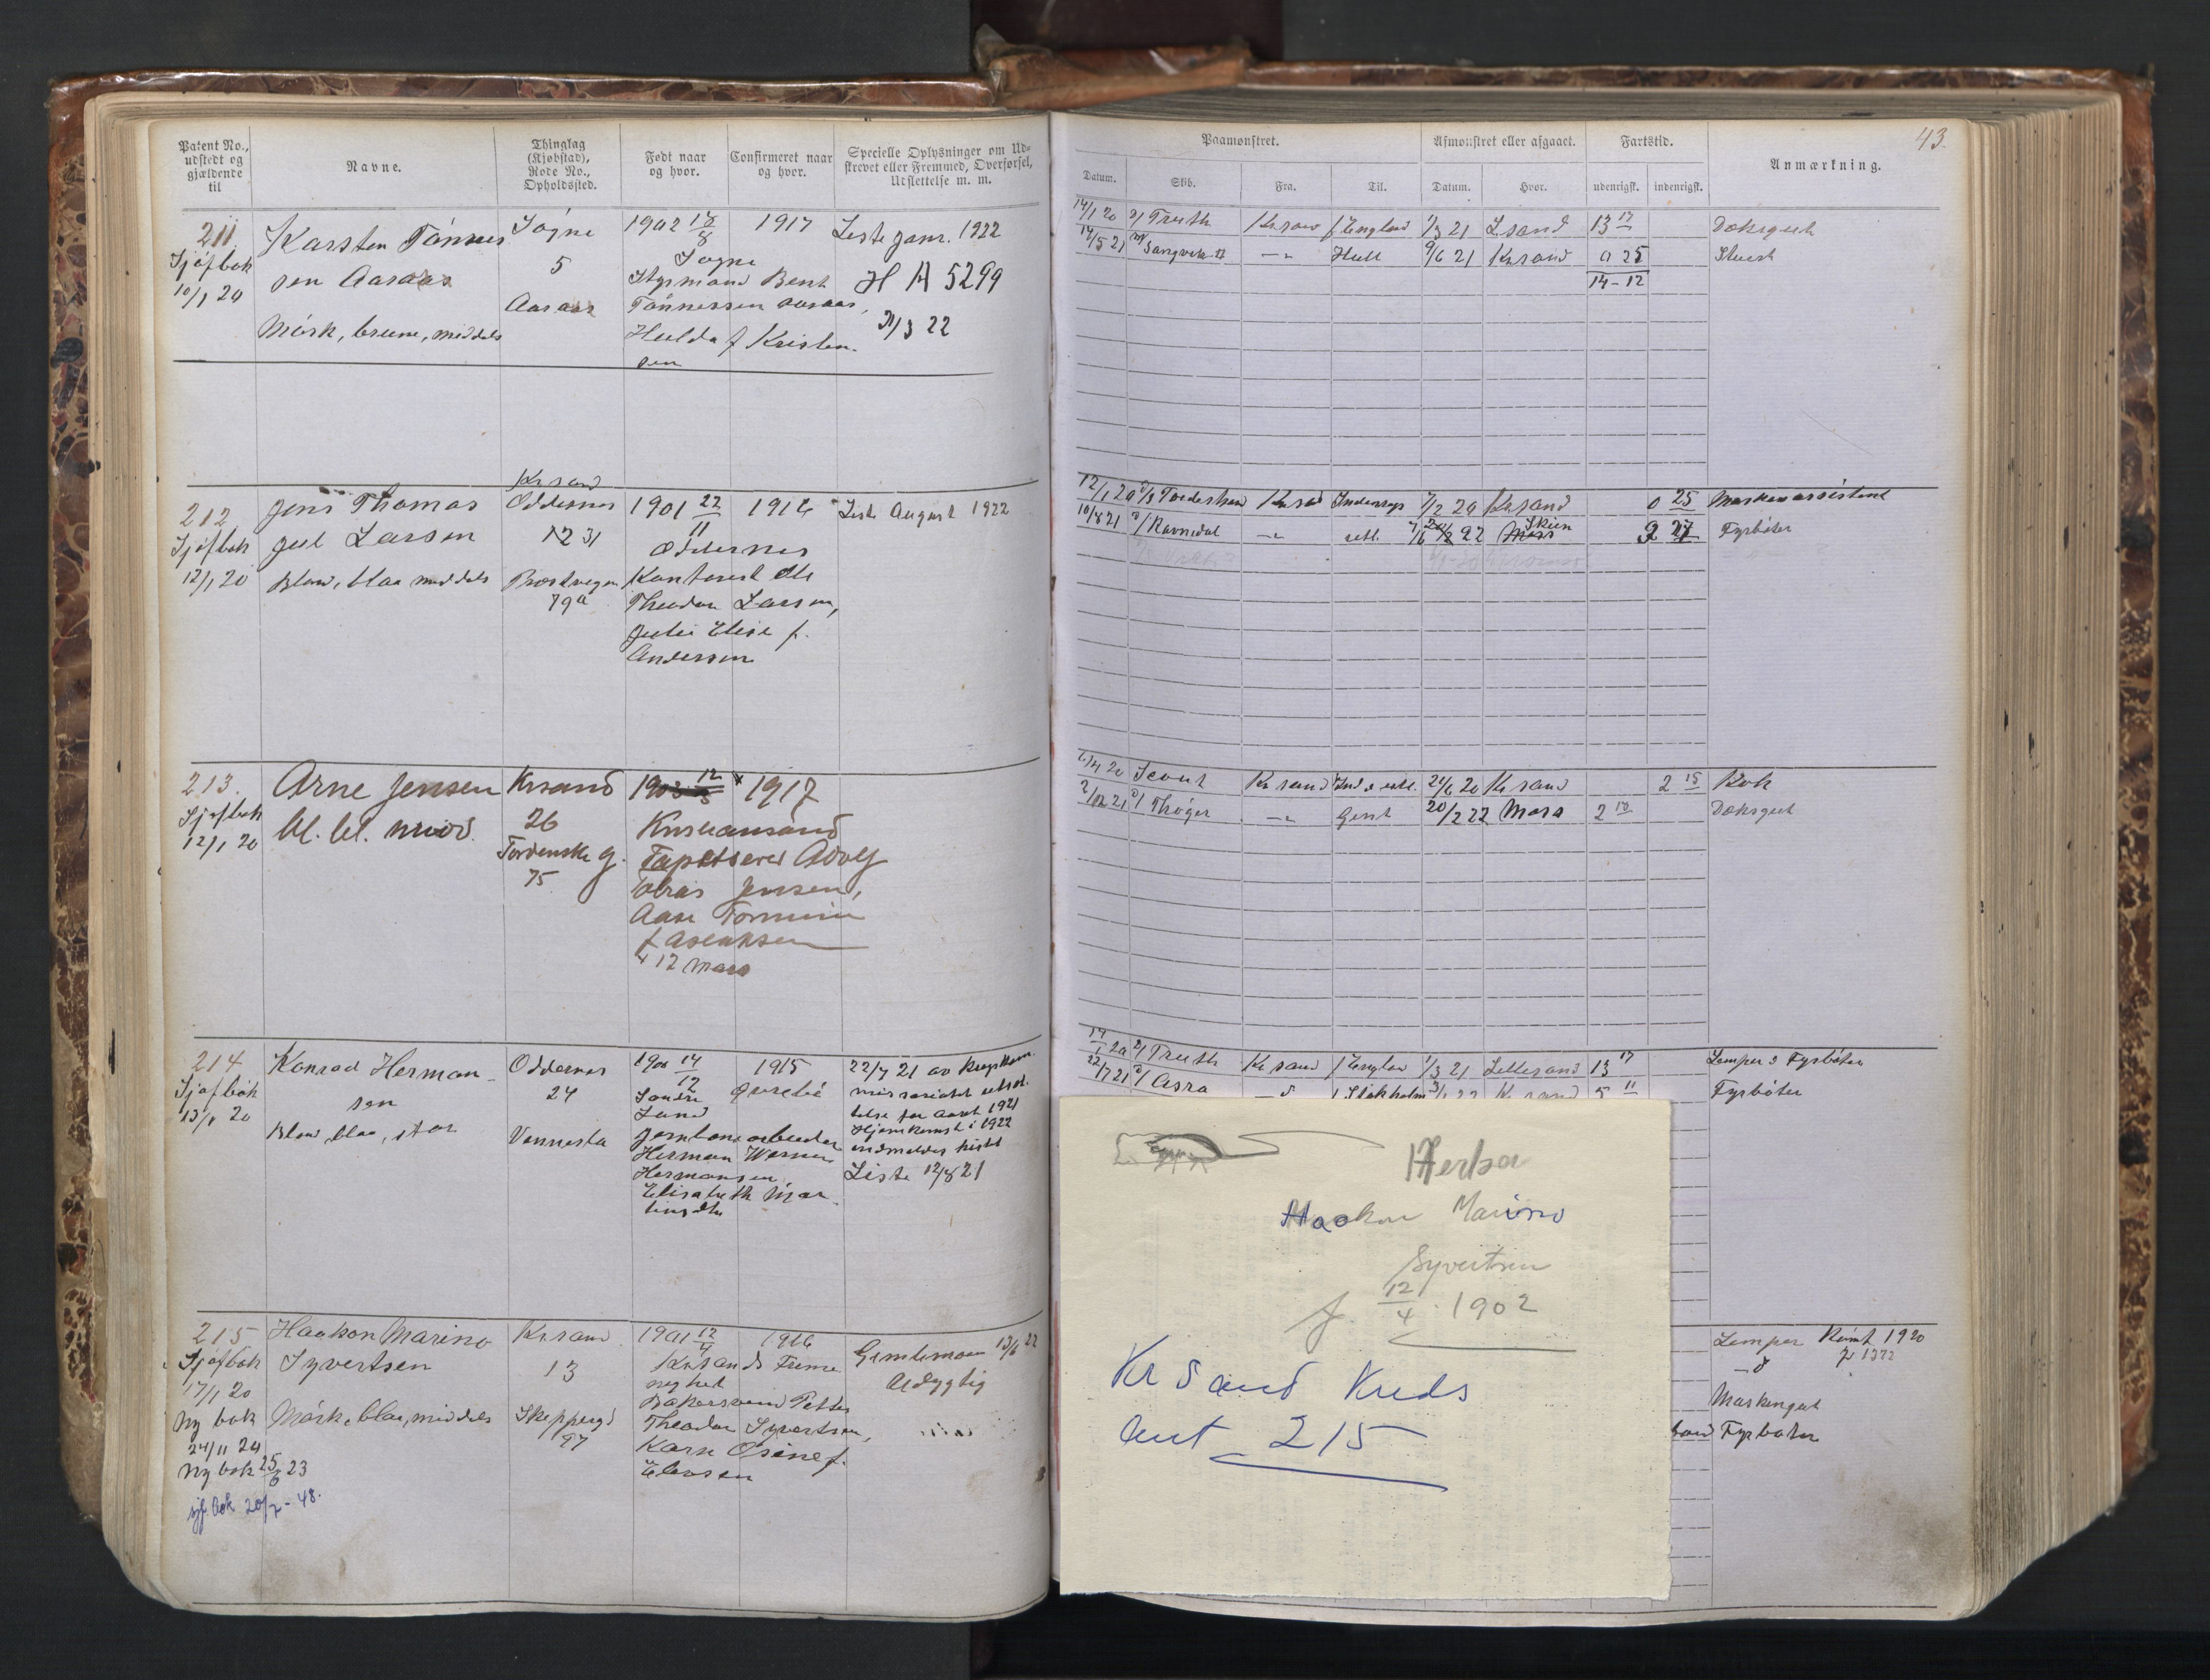 Patent No., udstedt og gjældende til
Navne.
Thinglag (Kjøbstad), Rode No., Opholdssted.
Født naar og hvor.
Confirmeret naar og hvor.
Specielle Oplysninger om Udskrevet eller Fremmed, Overførsel, Udslettelse m. m.
211
Sjøfbok
10/1 20
Karsten Tønnes
sen Aasaas
Mørk, brune, middels
Søgne
5
Aasaas
1902 18/8
Søgne
Styrmand Bent
Tønnessen Aasaas,
Hulda f Kristen
sen
1917
Liste Janr. 1922
H A 5299
31/3 22
212
Sjøfbok
12/1 20
Jens Thomas
Jul Larsen
Blond, blaa middels
Krsand
Oddernes
12 31
Prestvegen
79a
1901 22/11
Oddernes
Kontorist Ole
Theodor Larsen,
Julie Elise f.
Andersen
1916
Liste August 1922
213
Sjøfbok
12/1 20
Arne Jensen
bl. bl. mid.
Krsand
26
Tordensk g.
75
1903 12/3
Kristiansand
Tapetserer Adolf
Tobias Jensen,
Aase Tomine
f Aslaksen
12 Mars
1917
214
Sjøfbok
13/1 20
Konrad Herman
sen
Blond, blaa, stor
Oddernes
24
Vennesla
1900 14/12
Søndre
Land
Jernbanearbeider
Herman Werner
Hermansen,
Elisabeth Mar
tinsdtr
1915
22/7 21 av Krigskom
missariatet utsæt
telse for Aaret 1921
Hjemkomst i 1922
indmeldes hist
Liste 12/8 21
215
Sjøfbok
17/1 20
Ny bok
24/11 24
Ny bok 25/6 23
sjf. bok 20/7 - 48.
Haakon Marino
Syvertsen
Mørk, blaa, middels
Krsand
13
Skippergt
97
1901 12/4
Krsands Frime
nighet
Bakersvend Petter
Theodor Syvertsen,
Karn Osine f.
Ellevsen
1916
Gimlemoen 13/6 22
Udygtig
43.
Paamønstret.
Afmønstret eller afgaaet.
Fartstid.
Anmærkning.
Datum.
Skib.
Fra.
Til.
Datum.
Hvor.
udenrigsk.
indenrigsk.
14/1 20 D/ Truth Krsand f England 1/3 21 Lsand 13 17 Doksgut
14/5 21 Sangvek Hull 9/6 21 Krsand 0 25 Stuert
14-12
12/1 20 D/S Tordenskjold Krsand 7/2 20 Krsand 0 25 Maskinassistent
10/8 21 D/ Ravnedal 22 Skien Moss 27 Fyrbøter
20 Scout Krsand Ind & utl. 24/6 20 Krsand 2 15 Kok
2/12 21 D/ Thøger Gent 20/2 22 Moss 2 18 Doksgut
14/1 20 D/ Truth Krsand f England 1/3 21 Lillesand 13 17 Lemper & Fyrbøter
22/7 21 D/ Asra Stokholm Krsand 5 11 Fyrbøter
Lemper
Maskingut
Fyrbøter
Herba
Haakon Marino
Syvertsen
f. 12/4 1902
Kr Sand Kreds
Aut 215